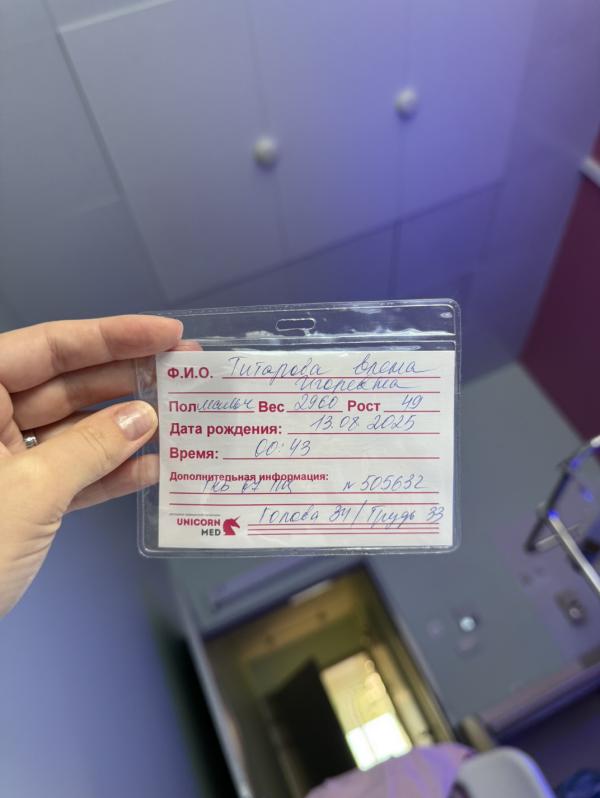 Ф.И.О. Титарова Елена
Игоревна
Пол мальч Вес 2960 Рост 49
Дата рождения: 13.08.2025
Время: 00:43
Дополнительная информация:
N 505632
UNICORN
MED
Голова 34/Грудь 33